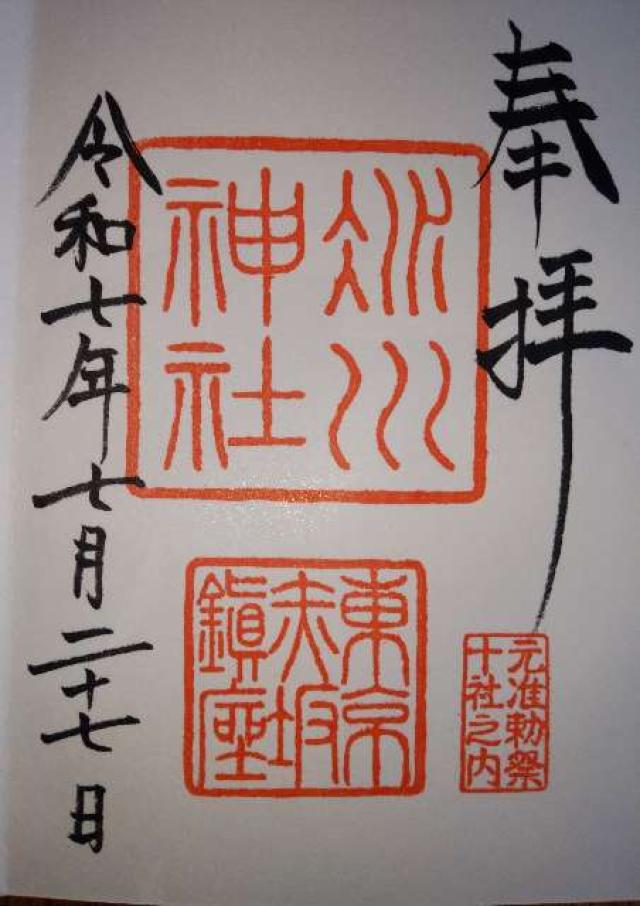 奉拝
元准勅祭
十社之内
氷川
神社
東京
赤坂
鎮座
令和七年七月二十七日